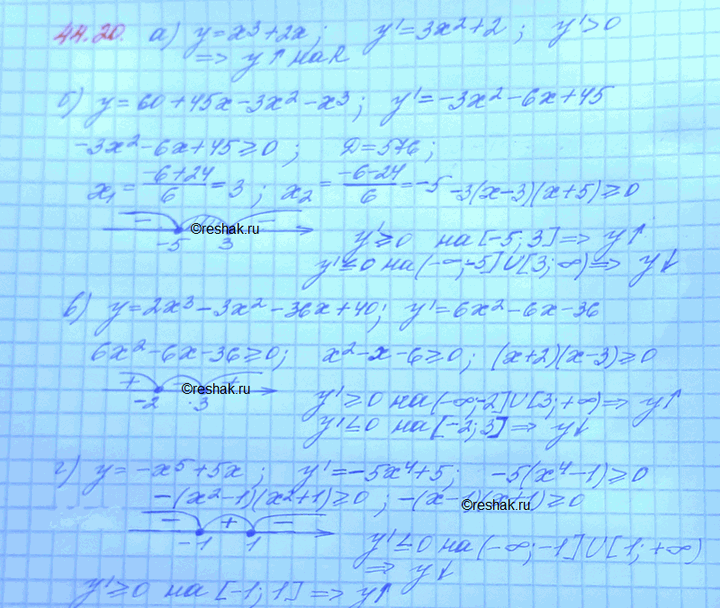 44.20. а) y=x³+2x; y'=3x²+2; y'>0
=> y↑ на R
б) y=60+45x-3x²-x³; y'=-3x²-6x+45
-3x²-6x+45≥0; Д=576;
x₁ = (-6+24)/6 = 3; x₂ = (-6-24)/6 = -5 -3(x-3)(x+5)≥0
- + -
-5 3
©reshak.ru
y'≥0 на [-5; 3] => y↑
y'≤0 на (-∞;-5]U[3; ∞) => y↓
в) y=2x³-3x²-36x+40; y'=6x²-6x-36
6x²-6x-36≥0; x²-x-6≥0; (x+2)(x-3)≥0
+ - +
-2 3
©reshak.ru
y'≥0 на (-∞;-2]U[3; +∞) => y↑
y'≤0 на [-2; 3] => y↓
г) y=-x⁵+5x; y'=-5x⁴+5; -5(x⁴-1)≥0
-(x²-1)(x²+1)≥0; -(x-1)(x+1)≥0
©reshak.ru
- + -
-1 1
y'≤0 на (-∞;-1]U[1; +∞)
=> y↓
y'≥0 на [-1; 1] => y↑